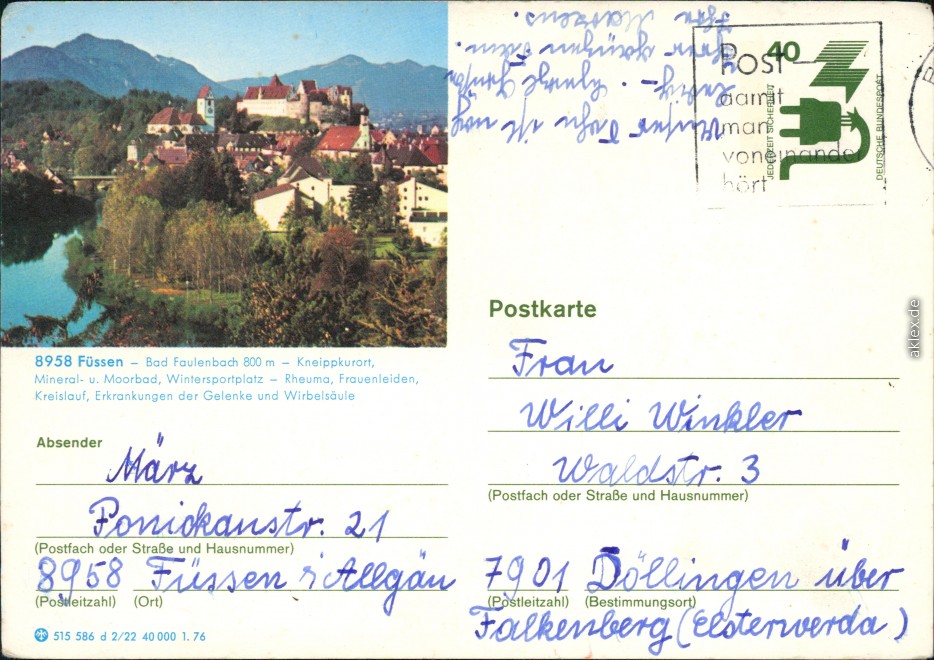 Unser Sohn ist noch
ledig –. Herzl. Grüße
Ihrer ganzen Fam.
Ihre Märzens.
40
JEDERZEIT SICHERHEIT
DEUTSCHE BUNDESPOST
Post-
damit
man
voneinander
hört
8958 Füssen – Bad Faulenbach 800 m – Kneippkurort,
Mineral- u. Moorbad, Wintersportplatz – Rheuma, Frauenleiden,
Kreislauf, Erkrankungen der Gelenke und Wirbelsäule
Absender
März
Ponickaustr. 21
(Postfach oder Straße und Hausnummer)
8958 Füssen i/Allgäu
(Postleitzahl) (Ort)
515 586 d 2/22 40 000 1. 76
Postkarte
Frau
Willi Winkler
Waldstr. 3
(Postfach oder Straße und Hausnummer)
7901 Döllingen über
(Postleitzahl) (Bestimmungsort)
Falkenberg (Elsterwerda)
aklex.de